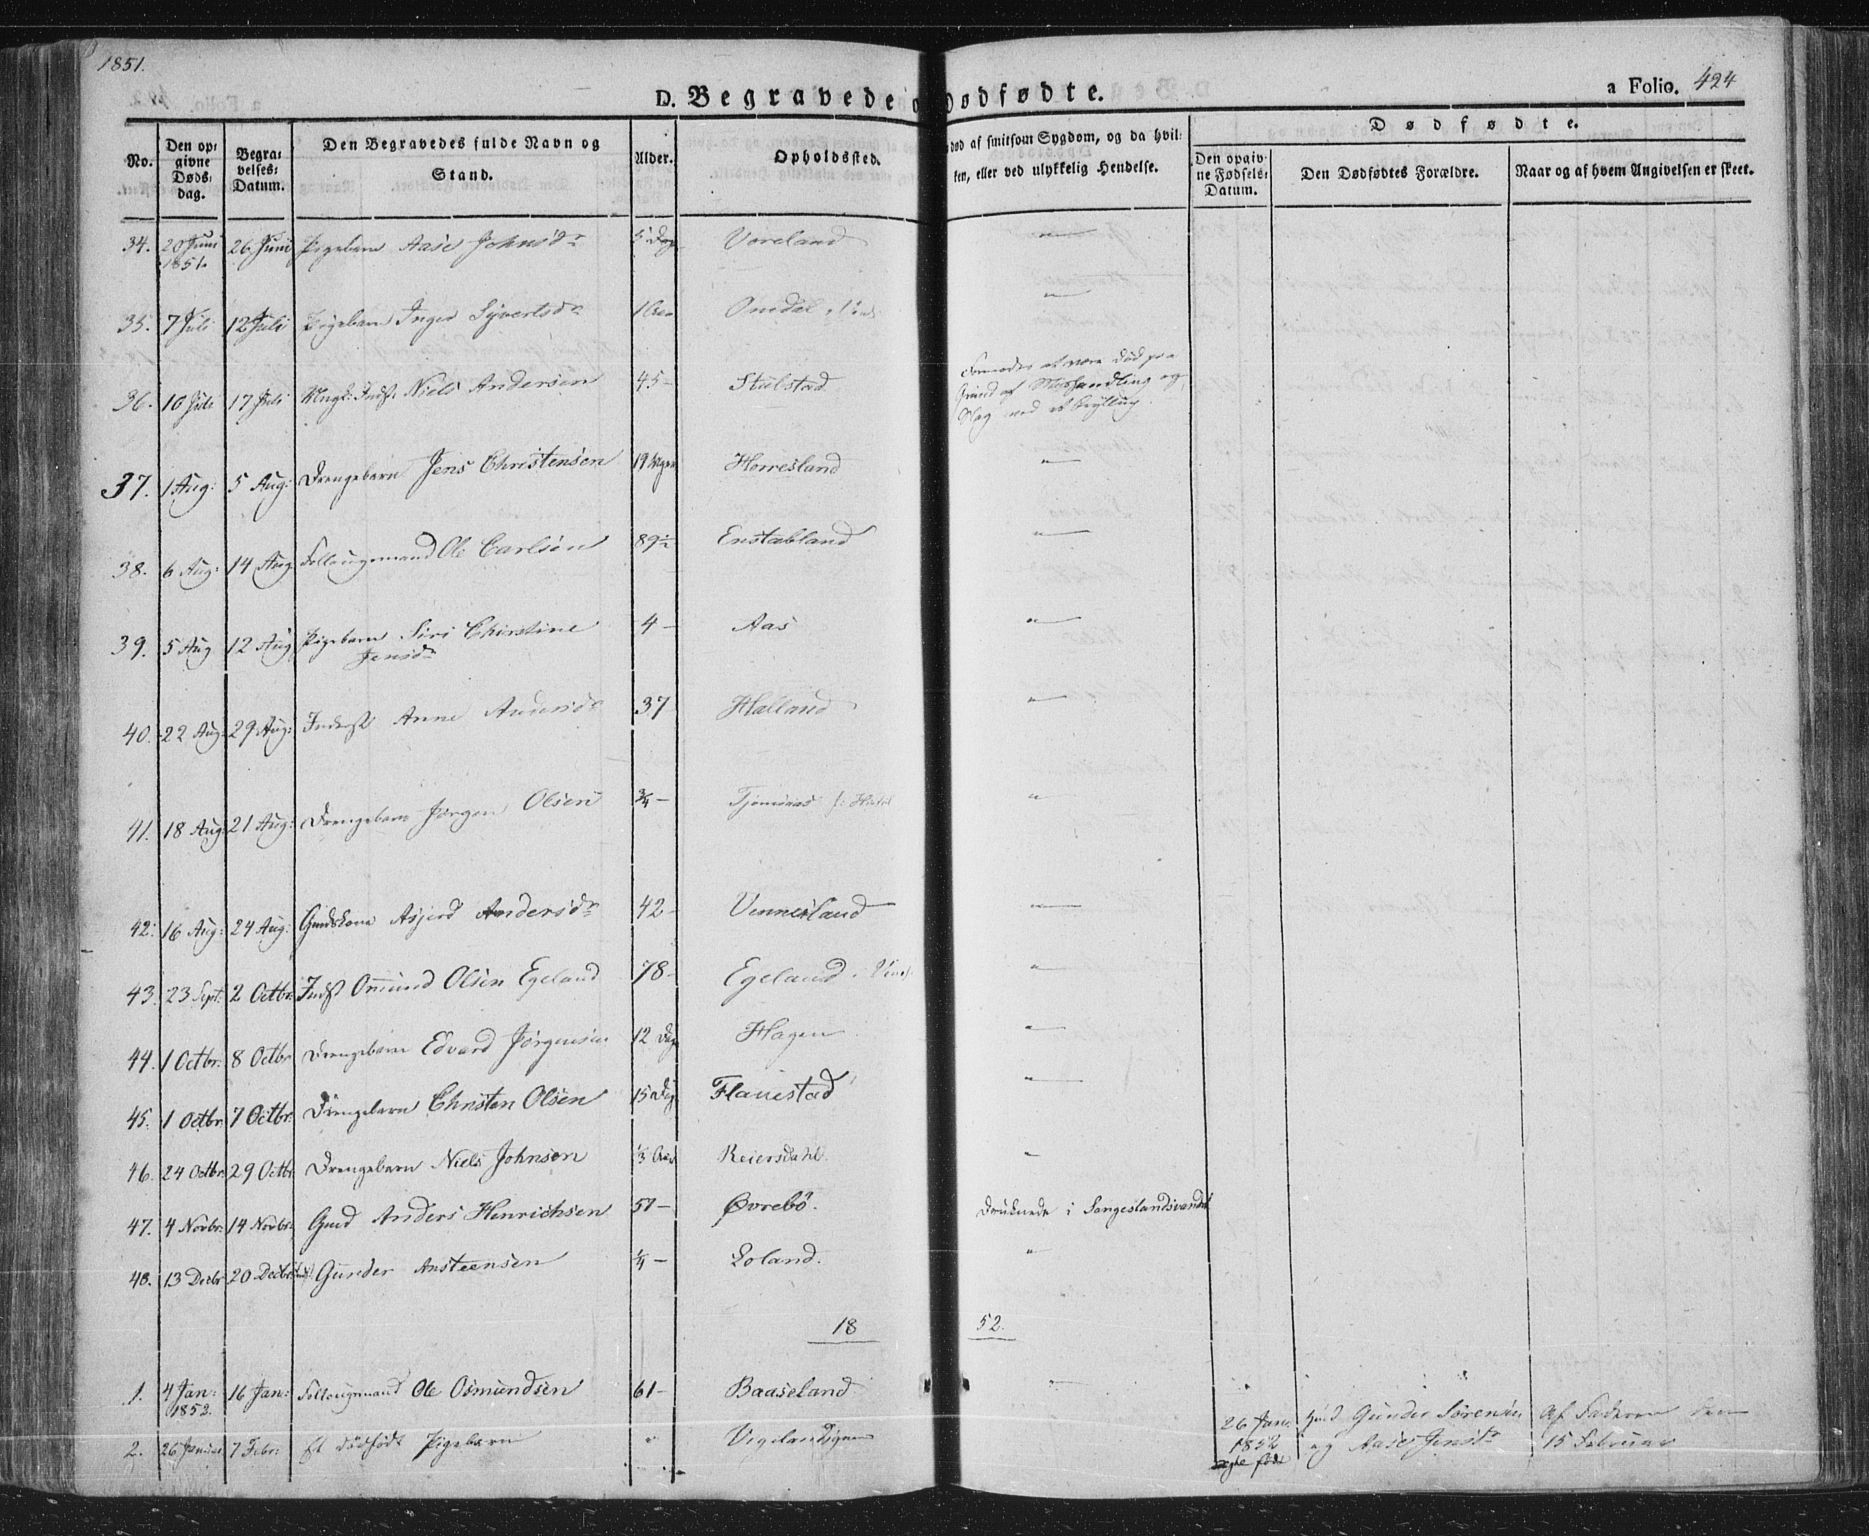 1851.
D. Begravede o Dødfødte.
a Folio. 424
No.
Den op=
givne
Døds=
dag.
Begra=
velses=
Datum.
Den Begravedes fulde Navn og
Stand.
Alder.
Opholdssted.
død af smitsom Sygdom, og da hvil=
ken, eller ved ulykkelig Hendelse.
Dødfødte.
Den opgiv=
ne Fødsels=
Datum.
Den Dødfødtes Forældre.
Naar og af hvem Angivelsen er skeet.
34. 20 Juni 26 Juni Pigebarn Aase Johnsdr 5 Dag Voreland "
1851.
35. 7 Juli 12 Juli Pigebarn Inger Syvertsdr Omdal "
36. 10 Juli 17 Juli Niels Andersen 45 - Stulstad Formodes at være død paa
Grund af Mishandling og
Slag ved et
37. 1 Aug: 5 Aug: Drengebarn Jens Christensen 19 Horresland "
38. 6 Aug: 14 Aug: Follaugsmand Ole Carlsen 89½ Enstabland "
39. 5 Aug 12 Aug Pigebarn Siri Christine 4 - Aas "
Jensdr
40. 22 Aug: 29 Aug: Inderst Anne Andersdr 37 Halland "
41. 18 Aug 21 Aug: Drengebarn Jørgen Olsen ¾ - Tjomsaas "
42. 16 Aug: 24 Aug: Gmdskone Asjerd Andersdr 42 - Venneslaud "
43. 23 Sept. 2 Octbr. Indst Omund Olsen Egeland 78 - Egeland "
44. 1 Octbr. 8 Octbr Drengebarn Edvard Jørgensen 12 Dag Hagen "
45. 1 Octbr. 7 Octbr. Drengebarn Christen Olsen 15 Dag Flanestad "
46. 24 Octbr. 29 Octbr. Drengebarn Niels Johnsen ⅓ Reiersdahl. "
47. 4 Novbr. 14 Novbr. Gmd Anders Henrichsen 51 - Øvrebö. Druknede i Sangeslandsvandet
48. 13 Decbr 20 Decbr Gunder Ansteensen ¼ - Loland. "
18
52.
1. 4 Jan: 16 Jan: Follaugsmand Ole Osmundsen 61 - Baaseland "
1852.
2. 26 Januar 7 Febr: Et dødfødt Pigebarn " Vigeland 26 Jan. Gmd Gunder Sørensen Af Faderen den
1852 og Aase Jensdr 15 Februar
ægte født